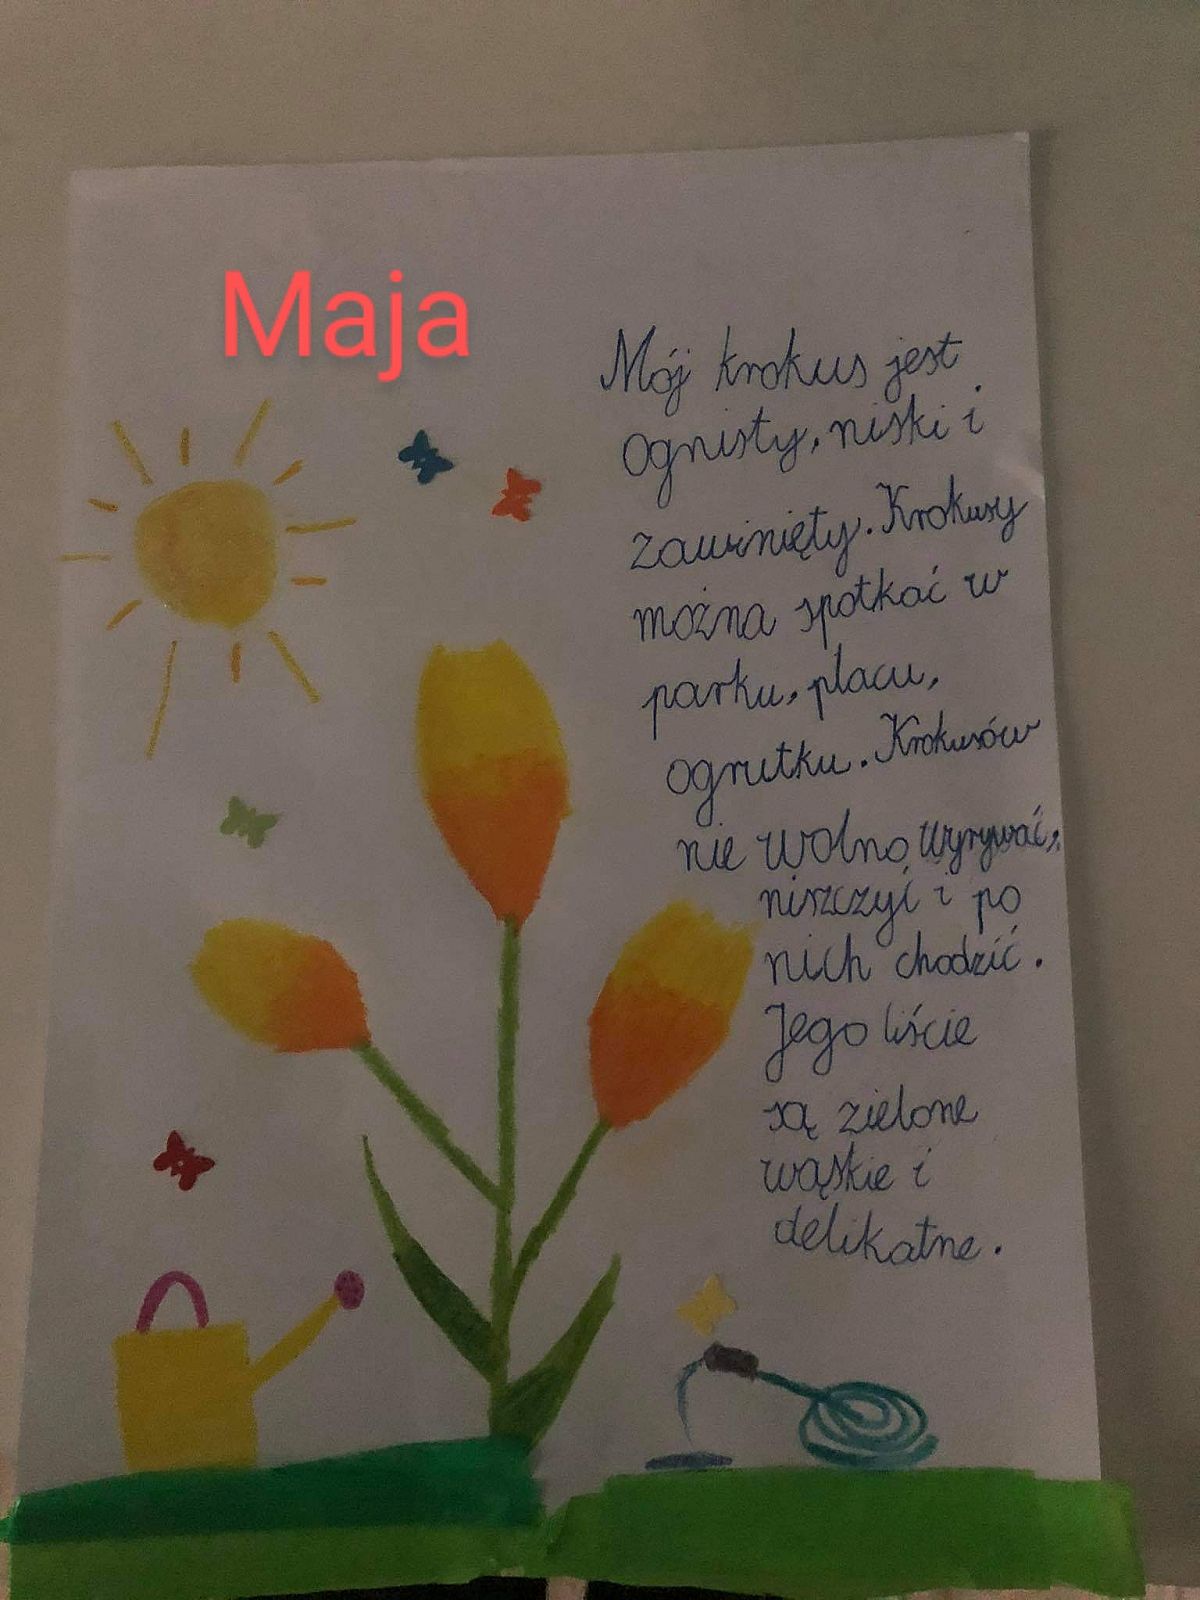 Maja
Mój krokus jest
ognisty, niski i
zawinięty. Krokusy
można spotkać w
parku, placu,
ogrutku. Krokusów
nie wolno wyrywać,
niszczyć i po
nich chodzić.
Jego liście
są zielone
wąskie i
delikatne.